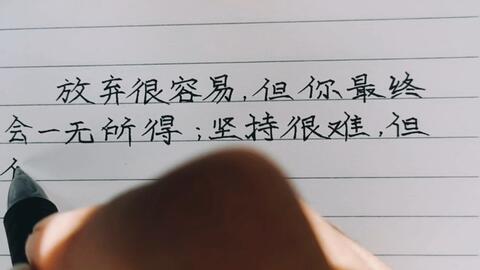 放弃很容易，但你最终
会一无所得；坚持很难，但